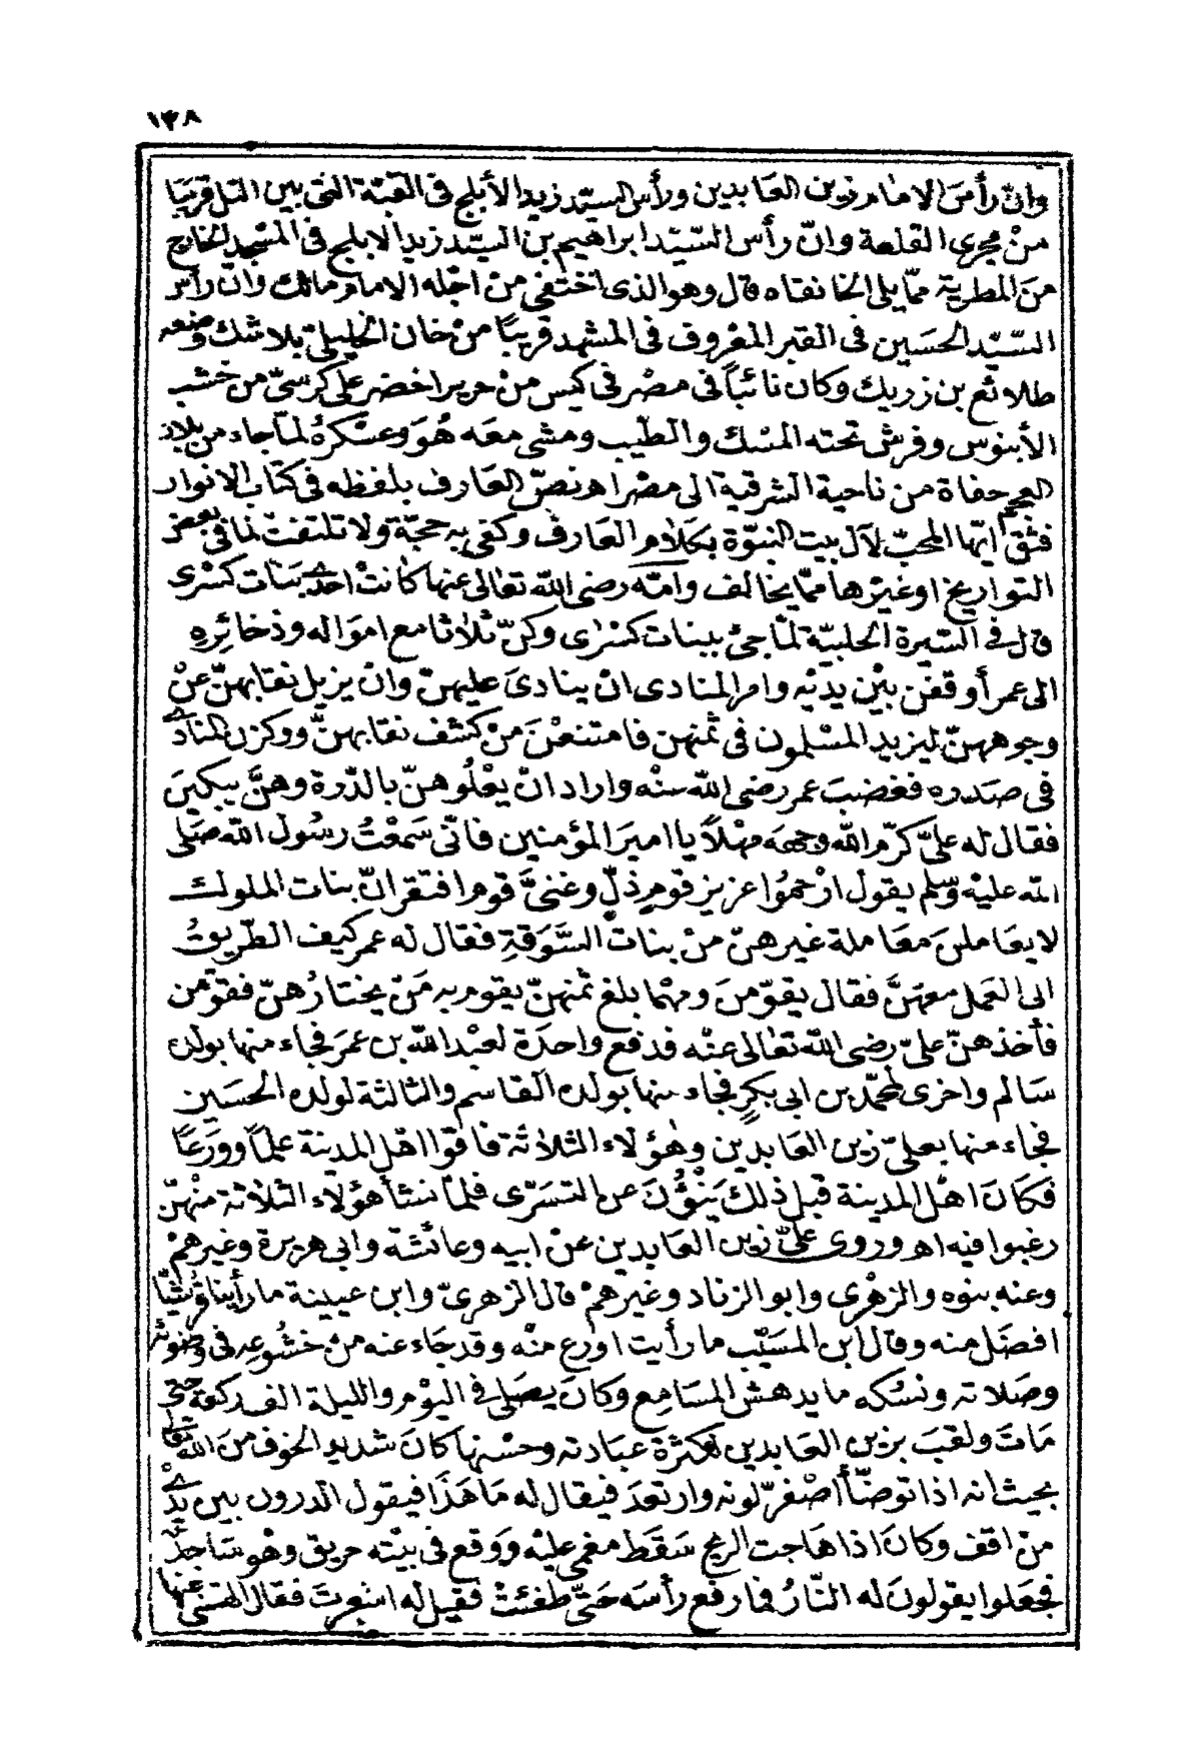 ١٣٨
وانّ رأسَ الامام زين العابدين ورأس السيّد زيد الأبلج فى القبّة التى بين التل قريبًا
منْ مجرى القلعة وانّ رأس السّيّد ابراهيم بن السيّد زيد الابلج فى المسْجد الخارج
منَ المطرية ممّا يلى الخانقاه قال وهو الذى اختفى منْ اجْله الامام مالك وانّ رأس
السّيّد الحسَين فى القبر المعْروف فى المشهد قريبًا منْ خان الخليلى بلا شك وضعه
طلائع بن زريك وكان نائبًا فى مصْر فى كيس منْ حرير اخضر على كرسىّ من خشب
الأبنوس وفرش تحته المسْك والطّيب ومشى معَه هُوَ وعسْكرهُ لمّا جاء من بلاد
العجم حفاة من ناحية الشرقية الى مصْر اهـ نصّ العَارف بلفظه فى كتاب الانوار
فثقْ ايّها المحبّ لآل بيت النبوّة بكلام العَارف وكفى به حجّة ولا تلتفت لما فى بعض
التواريخ او غيْرها ممّا يخالف وامّه رضى الله تعَالى عنها كانتْ احْدى بنات كسْرى
قال فى السّيرة الحلبيّة لمّا جئ ببنات كسْرٰى وكنّ ثلاثا مع امواله وذخائِرِه
الى عمر أوقفن بيْن يديْه وامر المنادى انْ ينادىَ عليهنّ وانْ يزيل نقابهنّ عنْ
وجوههنّ ليزيد المسْلمون فى ثمنهن فامتنعْنَ منْ كشف نقابهنّ ووكزن المنادى
فى صَدره فغضبَ عمر رضى الله عنْه واراد انْ يعْلُوهنّ بالدّرة وهنَّ يبكينَ
فقال له علىّ كرّم الله وجهه مهْلاً يا اميرَ المؤمنين فانّى سَمعْتُ رسُول الله صَلى
الله عليْه وسّلم يقول ارْحمُوا عزيز قومٍ ذلّ وغنىَّ قوم افتقر انّ بنات الملوك
لا يعَاملنَ معَاملة غيرهنّ منْ بنات السَّوَقَةِ فقال له عمر كيف الطّريقُ
الى العَمل معهَنَّ فقال يقوّمنَ ومهْما بلغ ثمنهنّ يقوم به مَنْ يختارُهنّ فقوّمن
فأخذهنّ علىّ رضى الله تعَالى عنْه فدفع واحدَة لعبْد الله بن عمَر فجاء منها بولده
سَالم واخرى لمحمّد بن ابى بكرٍ فجاء منها بولده القاسم والثالثة لولده الحسَين
فجاء منها بعلىّ زين العَابدين وهٰؤلاء الثلاثة فاقوا اهْل المدينة علمًا وورَعًا
فكانَ اهْل المدينة قبل ذلك يَنْؤُنَ عن التسَرّى فلمّا نشأ هؤلاء الثلاثة منهنّ
رغبوا فيه اهـ وروى علىّ زين العَابدين عنْ ابيه وعائشة وابى هريرة وغيرهمْ
وعنه بنوه والزهْرى وابو الزناد وغيرهمْ قال الزهرىّ وابن عيينة ما رأينا قرشيًّا
افضَل منه وقال ابن المسَيّب ما رأيت اورع منْه وقد جَاء عنه منْ خشُوعه فى وضوئه
وصَلاته ونسُكه ما يدهش المسَامِع وكانَ يصَلى فى اليوْم والليلة الف ركعة حتى
مَاتَ ولقبَ بزين العَابدين لكثرة عبَادته وحسْنها كانَ شديد الخوف منَ الله تعالى
بحيث انه اذا توضّأ أصْفرّ لونه وارتعدَ فيقال له مَا هَذَا فيقول اتدرون بين يدىْ
منْ اقف وكانَ اذا هَاجت الريح سَقَط مغمى عليْه ووقع فى بيْته حريق وهْو سَاجدٌ
فجعَلوا يقولونَ له النّارُ فما رفع رأسَه حَتّى طفئتْ فقيل له اشعرت فقال الهتنى عنها